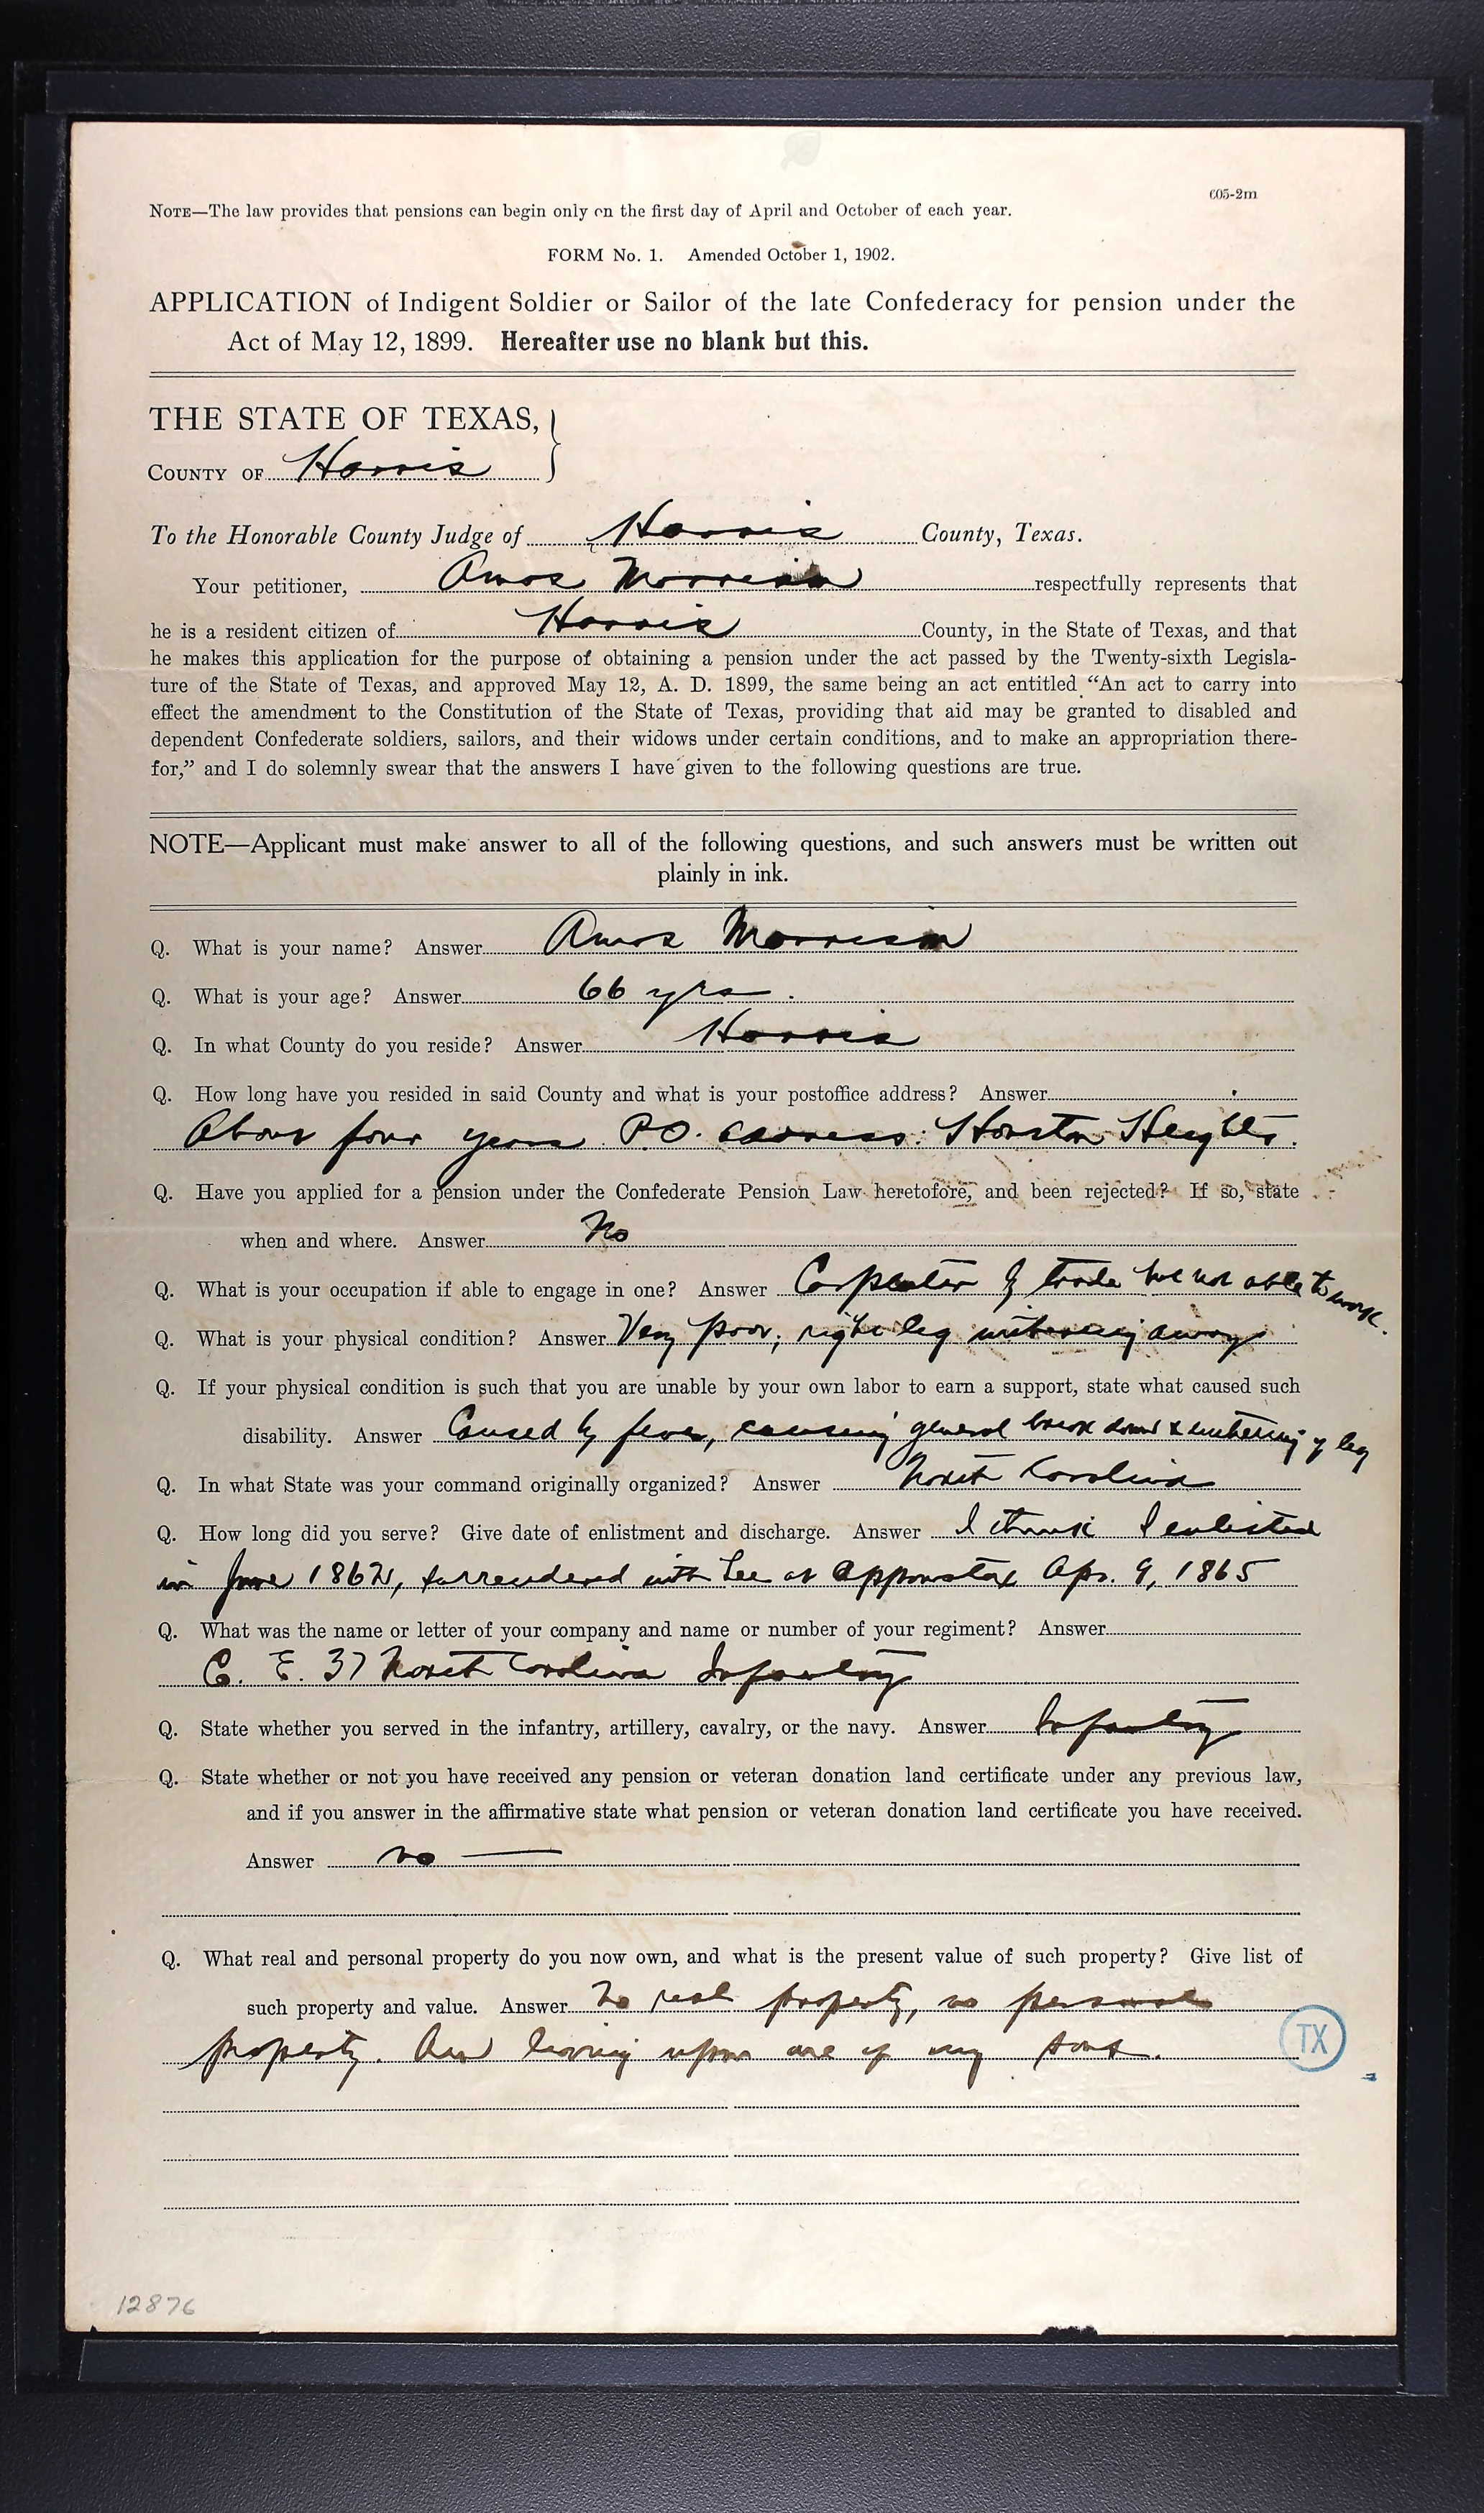 605-2m
NOTE—The law provides that pensions can begin only on the first day of April and October of each year.
FORM No. 1. Amended October 1, 1902.
APPLICATION of Indigent Soldier or Sailor of the late Confederacy for pension under the
Act of May 12, 1899. Hereafter use no blank but this.
THE STATE OF TEXAS,
COUNTY OF Harris
To the Honorable County Judge of Harris County, Texas.
Your petitioner, Amos Morrison respectfully represents that
he is a resident citizen of Harris County, in the State of Texas, and that
he makes this application for the purpose of obtaining a pension under the act passed by the Twenty-sixth Legisla-
ture of the State of Texas, and approved May 12, A. D. 1899, the same being an act entitled "An act to carry into
effect the amendment to the Constitution of the State of Texas, providing that aid may be granted to disabled and
dependent Confederate soldiers, sailors, and their widows under certain conditions, and to make an appropriation there-
for," and I do solemnly swear that the answers I have given to the following questions are true.
NOTE—Applicant must make answer to all of the following questions, and such answers must be written out
plainly in ink.
Q. What is your name? Answer Amos Morrison
Q. What is your age? Answer 66 yrs.
Q. In what County do you reside? Answer Harris
Q. How long have you resided in said County and what is your postoffice address? Answer
About four years P.O. address: Houston Heights.
Q. Have you applied for a pension under the Confederate Pension Law heretofore, and been rejected? If so, state
when and where. Answer No
Q. What is your occupation if able to engage in one? Answer Carpenter by trade but not able to work.
Q. What is your physical condition? Answer Very poor, right leg withering away
Q. If your physical condition is such that you are unable by your own labor to earn a support, state what caused such
disability. Answer Caused by fever, causing general break down & withering of leg
Q. In what State was your command originally organized? Answer North Carolina
Q. How long did you serve? Give date of enlistment and discharge. Answer I think I enlisted
in June 1862, surrendered with Lee at Appomatox Apr. 9, 1865
Q. What was the name or letter of your company and name or number of your regiment? Answer
C. E. 37 North Carolina Infantry
Q. State whether you served in the infantry, artillery, cavalry, or the navy. Answer Infantry
Q. State whether or not you have received any pension or veteran donation land certificate under any previous law,
and if you answer in the affirmative state what pension or veteran donation land certificate you have received.
Answer no —
Q. What real and personal property do you now own, and what is the present value of such property? Give list of
such property and value. Answer No real property, no personal
property. Am living upon one of my sons.
TX
12876